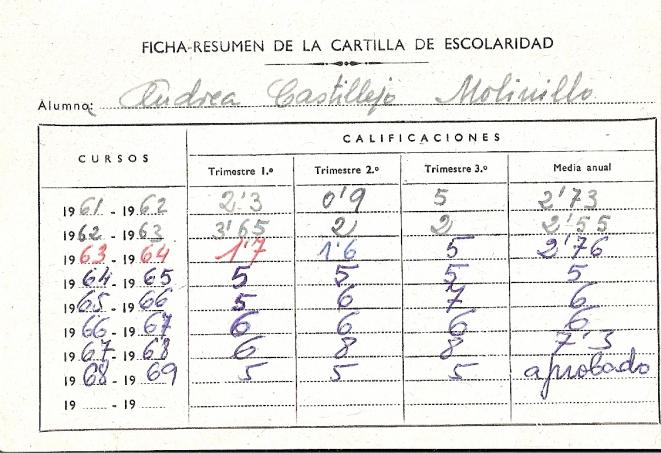 FICHA-RESUMEN DE LA CARTILLA DE ESCOLARIDAD
Alumno: Andrea Castillejo Molinillo
CALIFICACIONES
CURSOS
Trimestre 1.º Trimestre 2.º Trimestre 3.º Media anual
1961 - 1962 2'3 0'9 5 2'73
1962 - 1963 3'65 2 2 2'55
1963 - 1964 1'7 1'6 5 2'76
1964 - 1965 5 5 5 5
1965 - 1966 5 6 7 6
1966 - 1967 6 6 6 6
1967 - 1968 6 8 8 7'3
1968 - 1969 5 5 5 aprobado
19 - 19